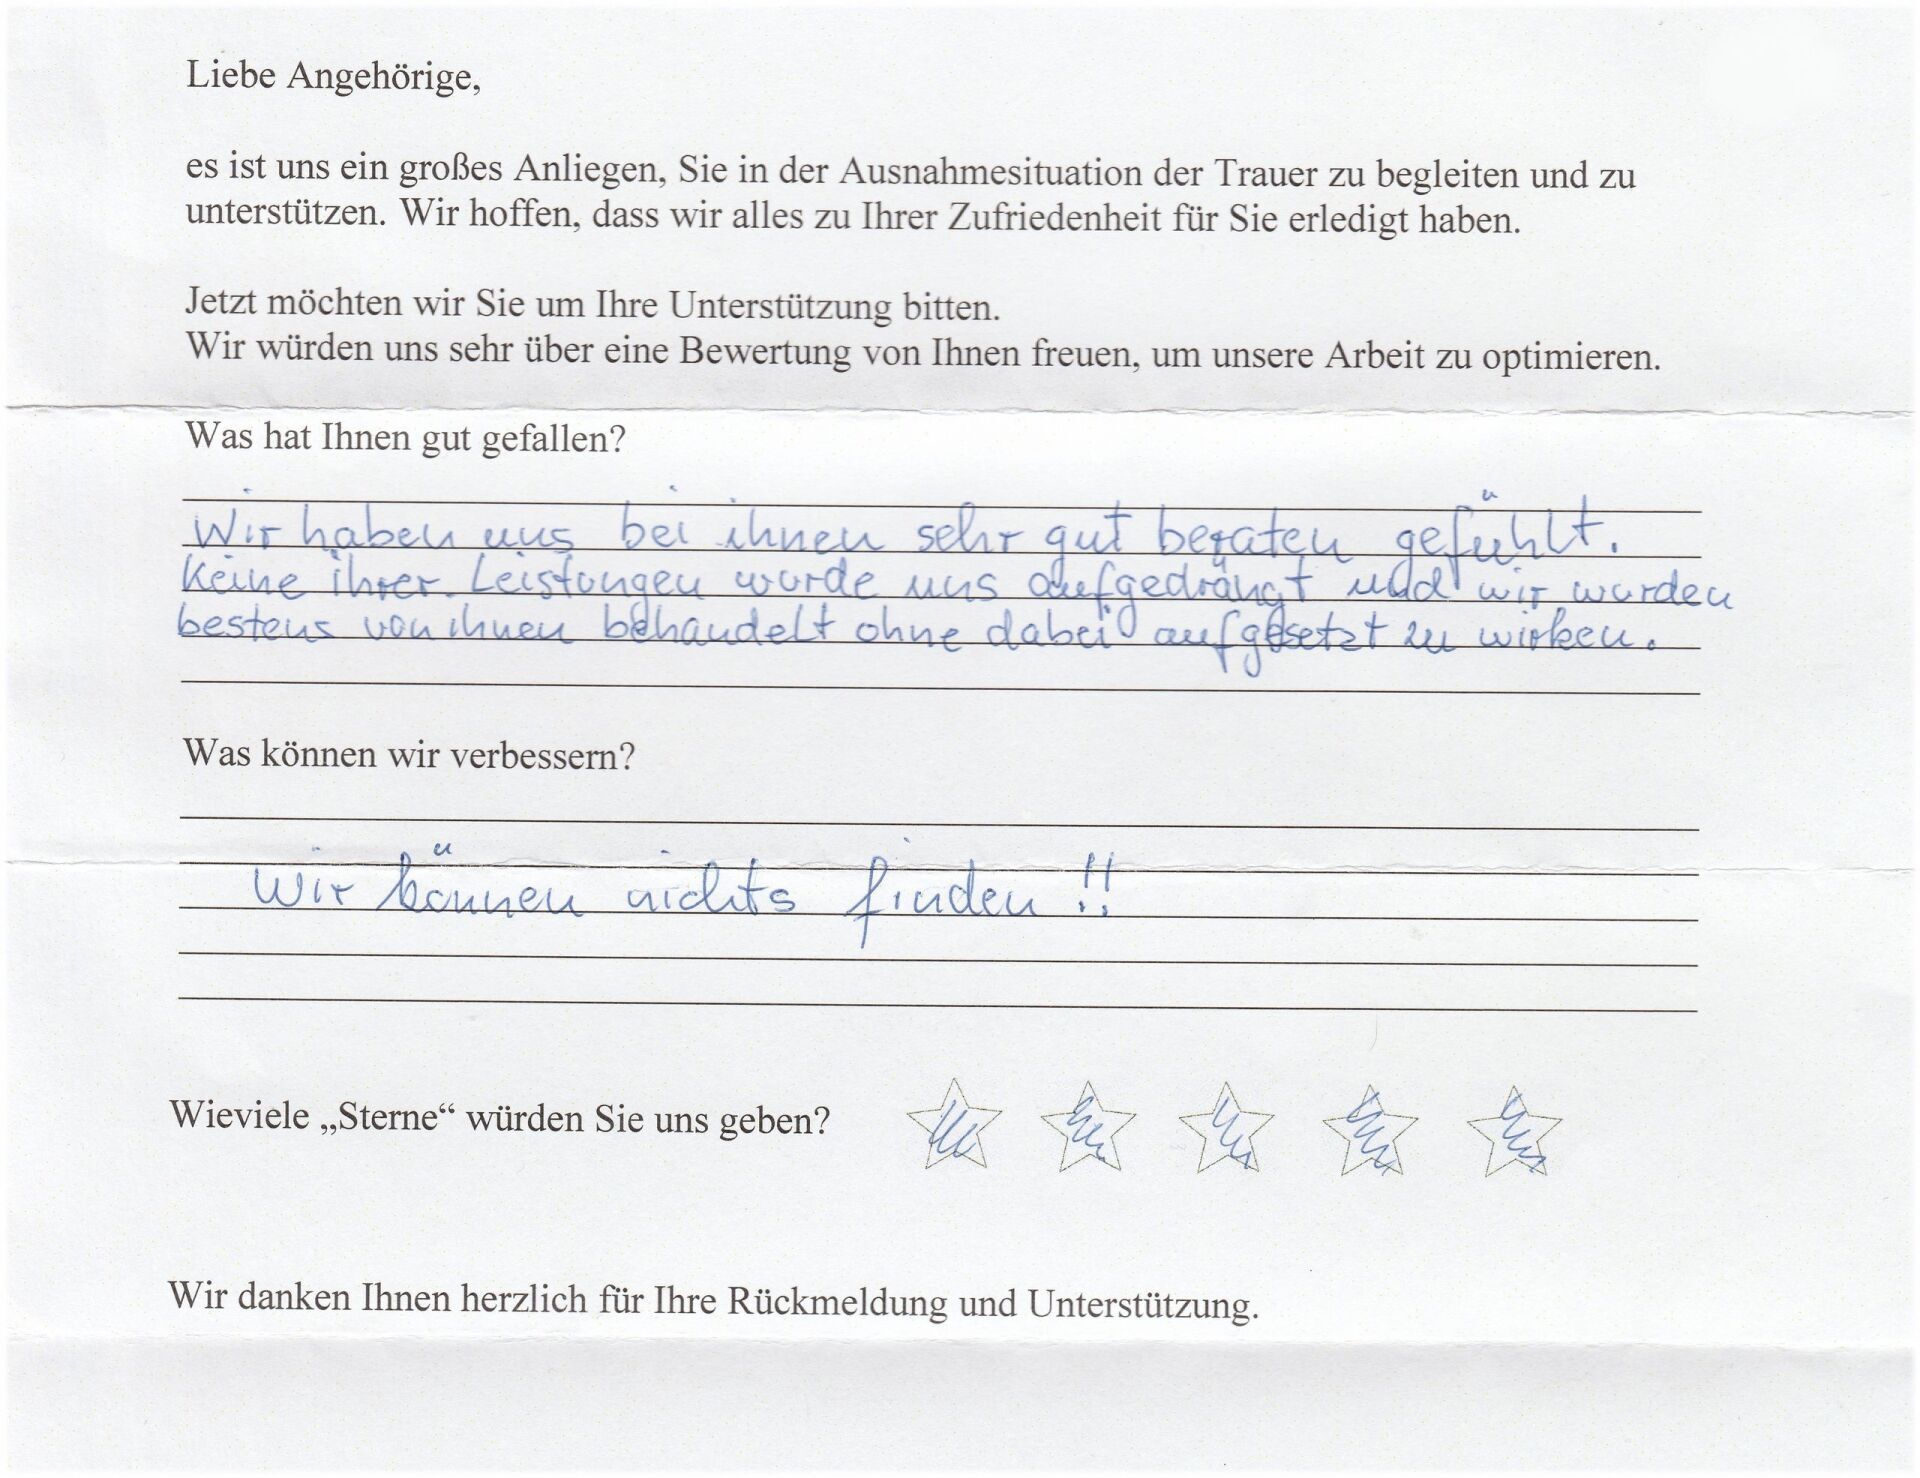 Liebe Angehörige,
es ist uns ein großes Anliegen, Sie in der Ausnahmesituation der Trauer zu begleiten und zu
unterstützen. Wir hoffen, dass wir alles zu Ihrer Zufriedenheit für Sie erledigt haben.
Jetzt möchten wir Sie um Ihre Unterstützung bitten.
Wir würden uns sehr über eine Bewertung von Ihnen freuen, um unsere Arbeit zu optimieren.
Was hat Ihnen gut gefallen?
Wir haben uns bei ihnen sehr gut beraten gefühlt.
Keine ihrer Leistungen wurde uns aufgedrängt und wir wurden
bestens von ihnen behandelt ohne dabei aufgesetzt zu wirken.
Was können wir verbessern?
Wir können nichts finden!!
Wieviele „Sterne“ würden Sie uns geben?
Wir danken Ihnen herzlich für Ihre Rückmeldung und Unterstützung.